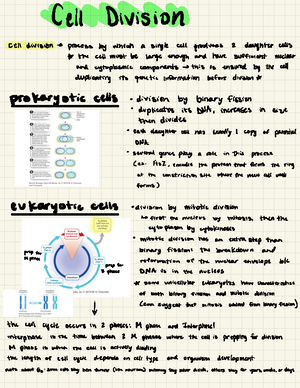 Cell Division
cell division → process by which a single cell produces 2 daughter cells
↳ the cell must be large enough and have sufficient nuclear
and cytoplasmic components → this is ensured by the cell
duplicating its genetic information before division
prokaryotic cells
- division by binary fission
- duplicates its DNA, increases in size
then divides
- each daughter cell has exactly 1 copy of parental
DNA
- several genes play a role in this process
(ex. FtsZ, encodes the protein that forms the ring
at the constriction site where the new cell wall
forms)
eukaryotic cells
- division by mitotic division
↳ first the nucleus by mitosis, then the
cytoplasm by cytokinesis
- mitotic division has an extra step than
binary fission: the breakdown and
reformation of the nuclear envelope b/c
DNA is in the nucleus
some unicellular eukaryotes have characteristics
of both binary fission and mitotic division
(can suggest that mitosis evolved from binary fission)
prep for
M phase
prep for
S phase
the cell cycle occurs in 2 phases: M phase and Interphase!
interphase is the time between 2 M phases where the cell is prepping for division
M phase is when the cell is actively dividing
the length of cell cycle depends on cell type and organism development